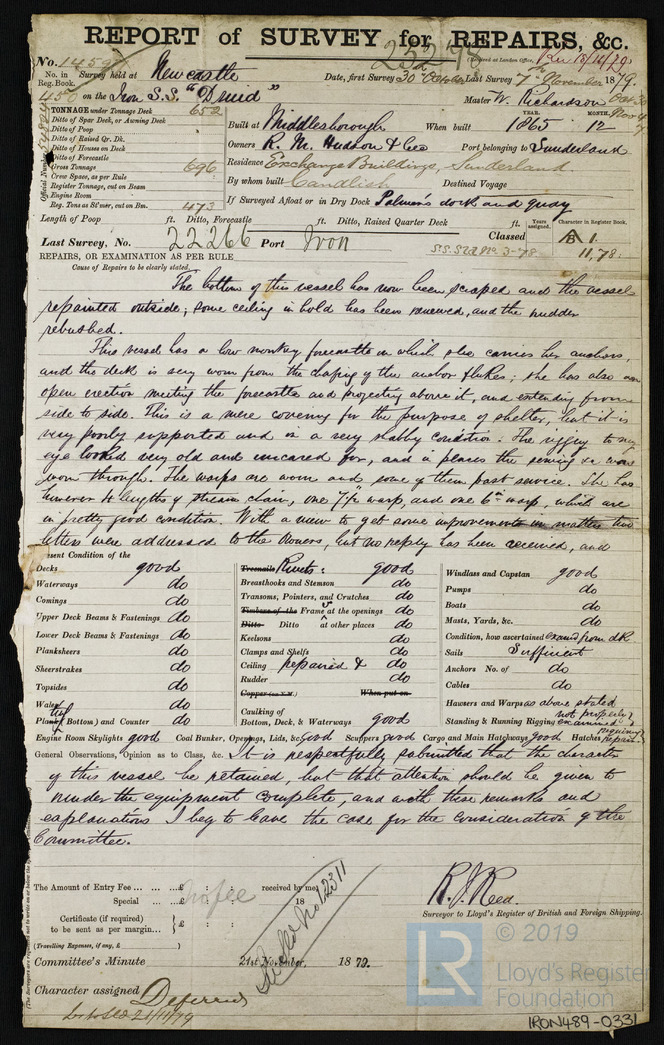 REPORT of SURVEY for REPAIRS, &c.
25278
Received at London Office, Rec 18/11/79
No. 1459
No. in Reg. Book.
Survey held at Newcastle
Date, first Survey 30th Octr Last Survey 7th November 1879.
454 on the Iron S.S. "Druid"
Master W. Richardson
TONNAGE under Tonnage Deck 652
Ditto of Spar Deck, or Awning Deck
Ditto of Poop
Ditto of Raised Qr. Dk.
Ditto of Houses on Deck
Ditto of Forecastle
Gross Tonnage 696
Crew Space, as per Rule
Register Tonnage, cut on Beam
Engine Room
Reg. Tons as St'mer, cut on Bm. 473
Official Number
Built at Middlesborough When built YEAR. 1865 MONTH. 12
Owners R. M. Hudson & Co Port belonging to Sunderland
Residence Exchange Buildings, Sunderland.
By whom built Candlish Destined Voyage
If Surveyed Afloat or in Dry Dock Palmer's dock and quay
Length of Poop ft. Ditto, Forecastle ft. Ditto, Raised Quarter Deck ft.
Years assigned. Character in Register Book.
Last Survey, No. 22266 Port Iron Classed A 1.
S.S. Sld No. 3-78 11,78.
REPAIRS, OR EXAMINATION AS PER RULE
Cause of Repairs to be clearly stated.
The bottom of this vessel has now been scraped and the vessel
repainted outside; some ceiling in hold has been renewed, and the rudder
rebushed.
This vessel has a low monkey forecastle on which she carries her anchors,
and the deck is very worn from the chafing of the anchor flukes; she has also an
open erection meeting the forecastle and projecting above it, and extending from
side to side. This is a mere covering for the purpose of shelter, but it is
very poorly supported and in a very shabby condition. The rigging to my
eye looked very old and uncared for, and in places the serving &c were
worn through. The warps are worn and some of them past service. She has
however 4 lengths of stream chain, one 7½" warp, and one 6in warp, which are
in pretty good condition. With a view to get some improvements in matters two
letters were addressed to the Owners, but no reply has been received, and
Present Condition of the
Decks good
Waterways do
Comings do
Upper Deck Beams & Fastenings do
Lower Deck Beams & Fastenings do
Planksheers do
Sheerstrakes do
Topsides do
Wales do
Plank (Bottom) and Counter do
Treenails Rivets: good
Breasthooks and Stemson do
Transoms, Pointers, and Crutches do
Timbers of the Frame at the openings do
Ditto Ditto at other places do
Keelsons do
Clamps and Shelfs do
Ceiling repaired & do
Rudder do
Copper (or Y.M.) When put on
Caulking of
Bottom, Deck, & Waterways good
Windlass and Capstan good
Pumps do
Boats do
Masts, Yards, &c. do
Condition, how ascertained exand from dk
Sails Sufficient
Anchors No. of do
Cables do
Hawsers and Warps as above stated
Standing & Running Rigging not properly examined
Engine Room Skylights good Coal Bunker, Openings, Lids, &c. Good Scuppers good Cargo and Main Hatchways good Hatches requiring repair
General Observations, Opinion as to Class, &c. It is respectfully submitted that the character
of this vessel be retained, but that attention should be given to
render the equipment complete, and with these remarks and
explanations I beg to leave the case for the consideration of the
Committee.
The Amount of Entry Fee ... ... ...£ : : received by me
Special ... ... ...£ No fee 18
Certificate (if required)
to be sent as per margin... }£ : :
(Travelling Expenses, if any, £ )
R. J. Reed.
Surveyor to Lloyd's Register of British and Foreign Shipping.
Committee's Minute 21st November, 1879.
Character assigned Deferred
21/11/79
LR
© 2019
Lloyd's Register
Foundation
IRON489-0331